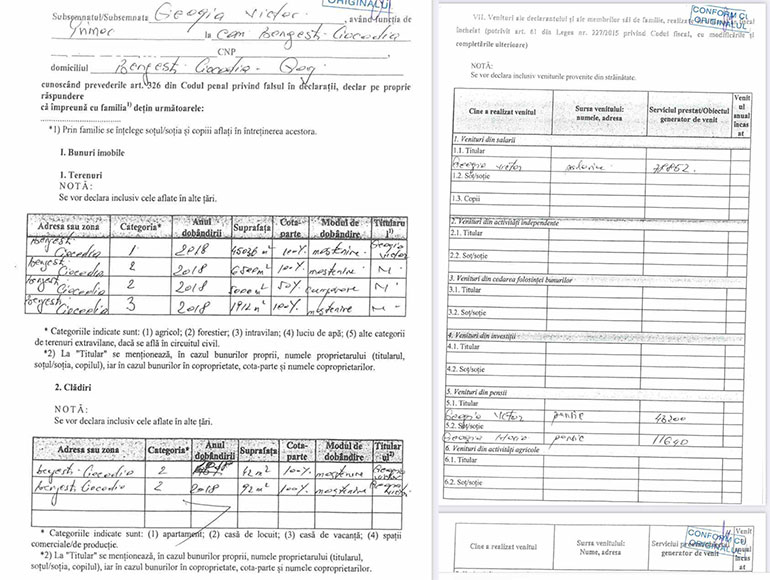 ORIGINALUL
Subsemnatul/Subsemnata Georgia Victor, având funcția de
Primar la com Bengești-Ciocadia
CNP
domiciliul Bengești-Ciocadia-Gorj
cunoscând prevederile art. 326 din Codul penal privind falsul în declarații, declar pe proprie
răspundere
că împreună cu familia1) dețin următoarele:
*1) Prin familie se înțelege soțul/soția și copiii aflați în întreținerea acestora.
I. Bunuri imobile
1. Terenuri
NOTĂ:
Se vor declara inclusiv cele aflate în alte țări.
Adresa sau zona Categoria* Anul dobândirii Suprafața Cota-parte Modul de dobândire Titularul1)
Bengești Ciocadia 1 2018 m² 100% moștenire Georgia Victor
Bengești Ciocadia 2 2018 6500 m² 100% moștenire
Bengești Ciocadia 2 2018 5000 m² 50% cumpărare
Bengești Ciocadia 3 2018 1912 m² 100% moștenire
* Categoriile indicate sunt: (1) agricol; (2) forestier; (3) intravilan; (4) luciu de apă; (5) alte categorii
de terenuri extravilane, dacă se află în circuitul civil.
*2) La "Titular" se menționează, în cazul bunurilor proprii, numele proprietarului (titularul,
soțul/soția, copilul), iar în cazul bunurilor în coproprietate, cota-parte și numele coproprietarilor.
2. Clădiri
NOTĂ:
Se vor declara inclusiv cele aflate în alte țări.
Adresa sau zona Categoria* Anul dobândirii Suprafața Cota-parte Modul de dobândire Titularul2)
Bengești-Ciocadia 2 m² 100% moștenire Georgia Victor
Bengești Ciocadia 2 2018 92 m² 100% moștenire Georgia Victor
* Categoriile indicate sunt: (1) apartament; (2) casă de locuit; (3) casă de vacanță; (4) spații
comerciale/de producție.
*2) La "Titular" se menționează, în cazul bunurilor proprii, numele proprietarului (titularul,
soțul/soția, copilul), iar în cazul bunurilor în coproprietate, cota-parte și numele coproprietarilor.
CONFORM CU
ORIGINALUL
VII. Venituri ale declarantului și ale membrilor săi de familie, realizate fiscal
încheiat (potrivit art. 61 din Legea nr. 227/2015 privind Codul fiscal, cu modificările și
completările ulterioare)
NOTĂ:
Se vor declara inclusiv veniturile provenite din străinătate.
Cine a realizat venitul Sursa venitului: numele, adresa Serviciul prestat/Obiectul generator de venit Venitul anual încasat
1. Venituri din salarii
1.1. Titular
Georgia Victor 78862
1.2. Soț/soție
1.3. Copii
2. Venituri din activități independente
2.1. Titular
2.2. Soț/soție
3. Venituri din cedarea folosinței bunurilor
3.1. Titular
3.2. Soț/soție
4. Venituri din investiții
4.1. Titular
4.2. Soț/soție
5. Venituri din pensii
5.1. Titular
Georgia Victor pensie 43200
5.2. Soț/soție
Georgia Maria pensie 11640
6. Venituri din activități agricole
6.1. Titular
6.2. Soț/soție
CONFORM CU
ORIGINALUL
Cine a realizat venitul Sursa venitului: Nume, adresa Serviciul generator de venit Venit anual